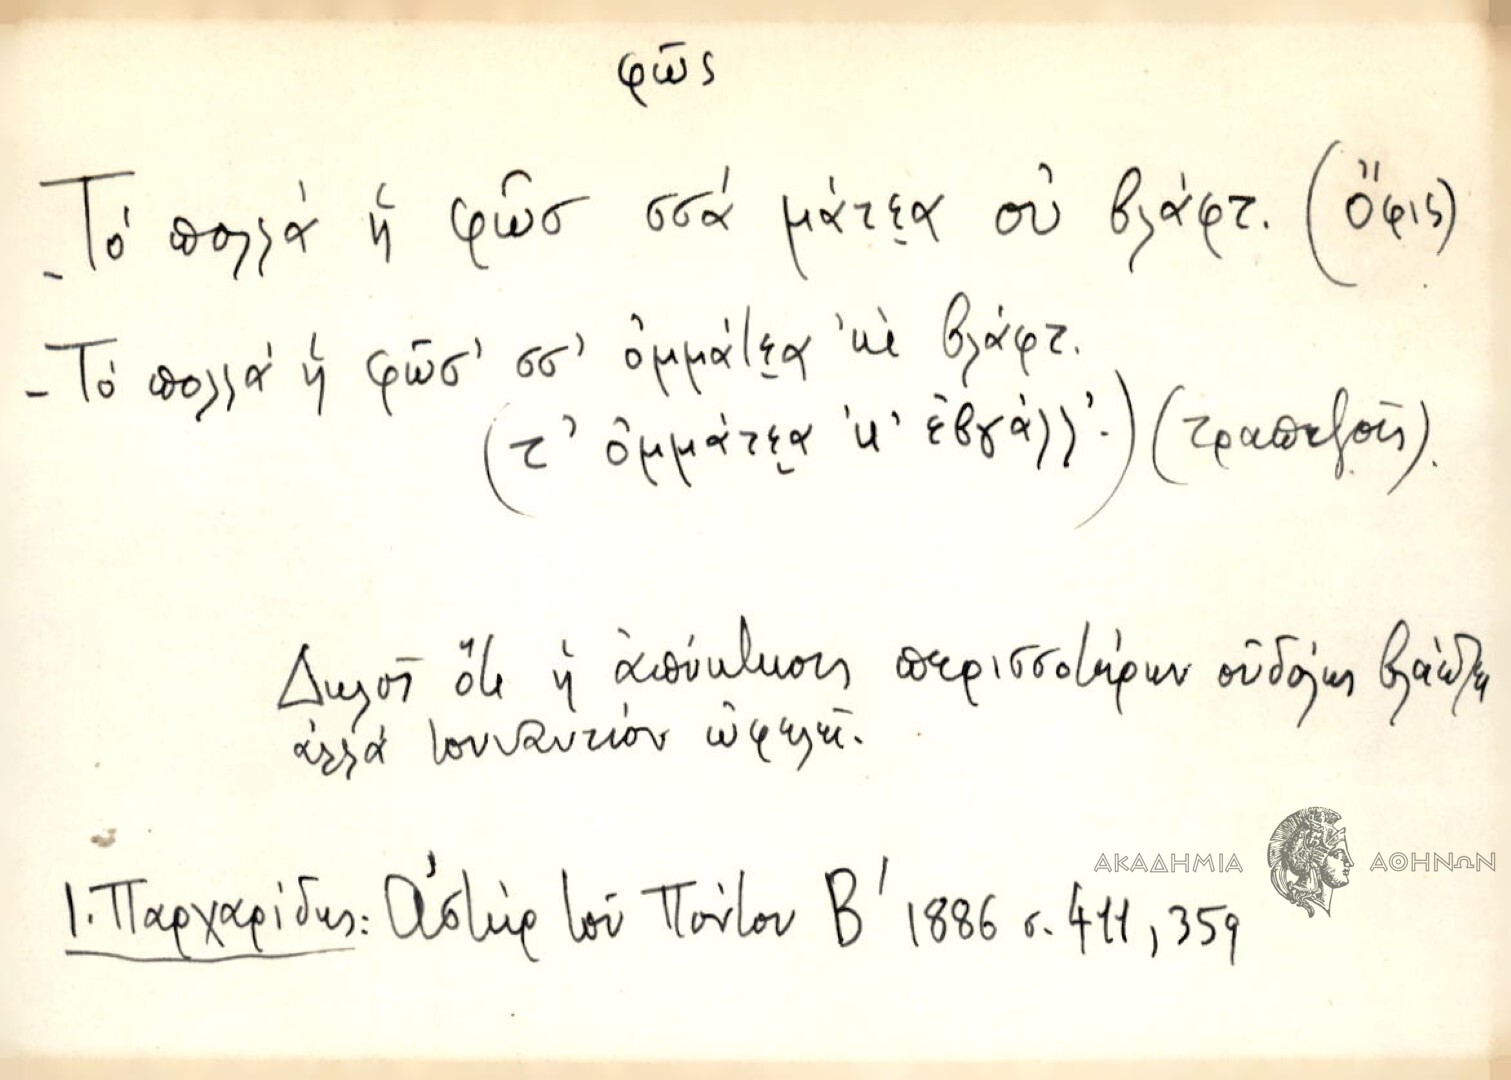 φῶς
- Τὸ πολλὰ ἡ φῶσ σσὰ μάτε̮α οὐ βλάφτ. (Ὄφις)
- Τὸ πολλὰ ἡ φῶσ' σσ' ὀμμάτε̮α 'κὲ βλάφτ.
(τ' ὀμμάτε̮α 'κ' ἐβγάλλ'.) (Τραπεζοῦς).
Δηλοῖ ὅτι ἡ ἀπόκτησις περισσοτέρων οὐδόλως βλάπτει
ἀλλὰ τοὐναντίον ὠφελεῖ.
Ι. Παρχαρίδης: Ἀστὴρ τοῦ Πόντου Β' 1886 σ. 411, 359
ΑΚΑΔΗΜΙΑ ΑΘΗΝΩΝ